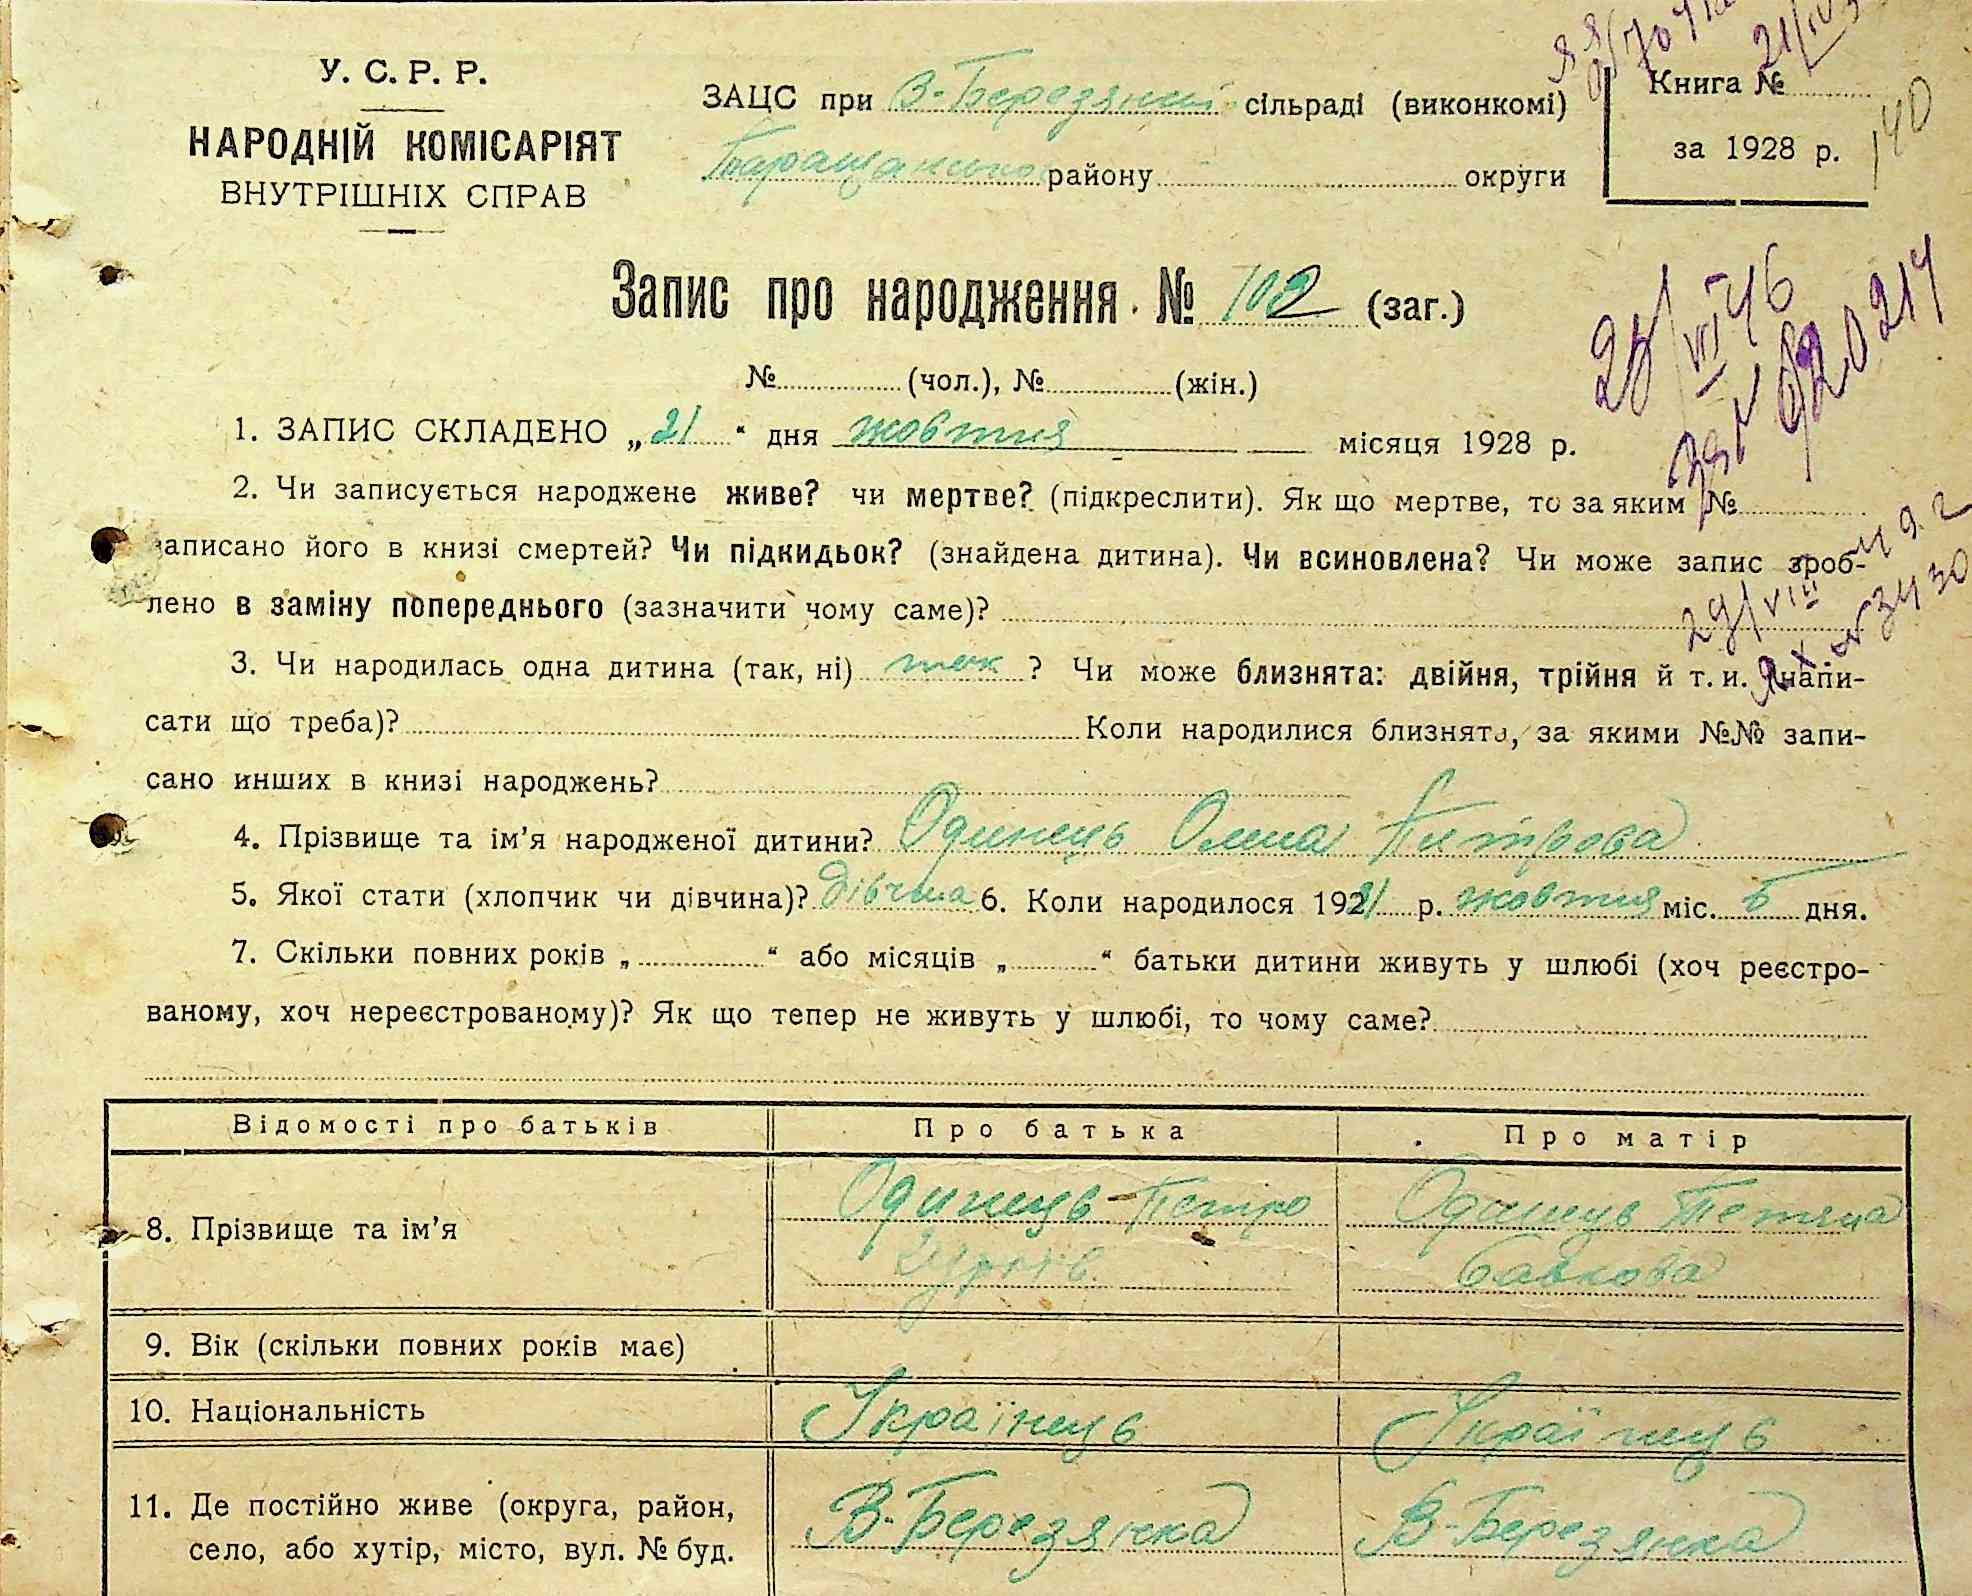 У. С. Р. Р.
НАРОДНІЙ КОМІСАРІЯТ
ВНУТРІШНІХ СПРАВ
ЗАЦС при В-Березянській сільраді (виконкомі)
Таращанського району округи
Книга №
за 1928 р.
140
Запис про народження № 102 (заг.)
№ (чол.), № (жін.)
25/VII 46
1. ЗАПИС СКЛАДЕНО „21“ дня жовтня місяця 1928 р.
2. Чи записується народжене живе? чи мертве? (підкреслити). Як що мертве, то за яким №
записано його в книзі смертей? Чи підкидьок? (знайдена дитина). Чи всиновлена? Чи може запис зроб-
лено в заміну попереднього (зазначити чому саме)?
29/VIII 49 г
3. Чи народилась одна дитина (так, ні) так ? Чи може близнята: двійня, трійня й т. и. (напи-
сати що треба)? Коли народилися близнята, за якими №№ запи-
сано инших в книзі народжень?
4. Прізвище та ім’я народженої дитини? Одинець Олина Питрова
5. Якої стати (хлопчик чи дівчина)? дівчина 6. Коли народилося 1921 р. жовтня міс. 5 дня.
7. Скільки повних років „ “ або місяців „ “ батьки дитини живуть у шлюбі (хоч реєстро-
ваному, хоч нереєстрованому)? Як що тепер не живуть у шлюбі, то чому саме?
Відомості про батьків Про батька Про матір
8. Прізвище та ім’я Одинець Петро Одинець Тетяна
Савкова
9. Вік (скільки повних років має)
10. Національність Українець Українець
11. Де постійно живе (округа, район, В-Березянка В-Березянка
село, або хутір, місто, вул. № буд.